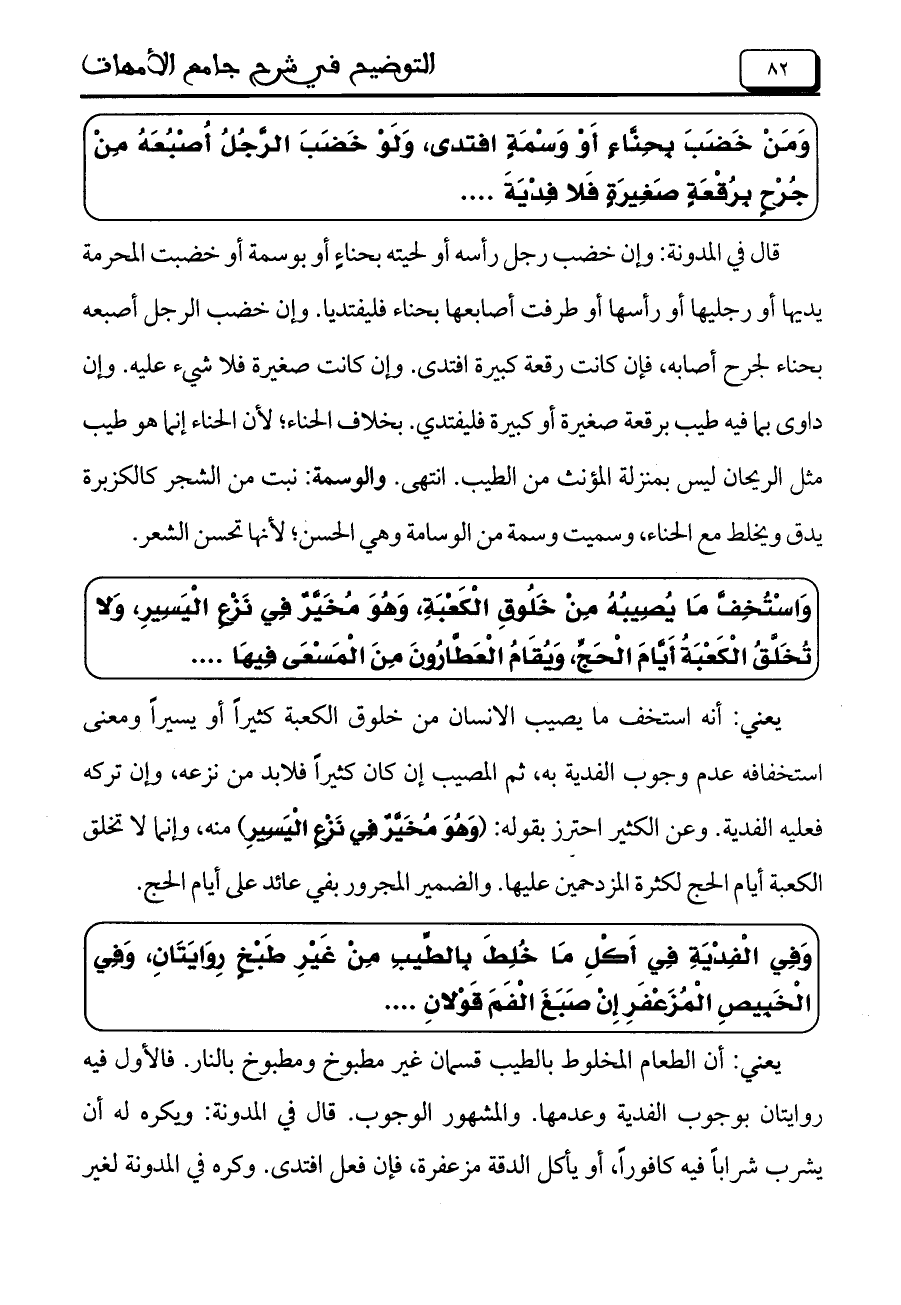 ٨٢
التوضيح في شرح جامع الأمهات
وَمَنْ خَضَبَ بِحِنَّاءٍ أَوْ وَسْمَةٍ افتدى، وَلَوْ خَضَبَ الرَّجُلُ أُصْبُعَهُ مِنْ
جُرْحٍ بِرُقْعَةٍ صَغِيرَةٍ فَلا فِدْيَةَ ....
قال في المدونة: وإن خضب رجل رأسه أو لحيته بحناءٍ أو بوسمة أو خضبت المحرمة
يديها أو رجليها أو رأسها أو طرفت أصابعها بحناء فليفتديا. وإن خضب الرجل أصبعه
بحناء لجرح أصابه، فإن كانت رقعة كبيرة افتدى. وإن كانت صغيرة فلا شيء عليه. وإن
داوى بما فيه طيب برقعة صغيرة أو كبيرة فليفتدي. بخلاف الحناء؛ لأن الحناء إنما هو طيب
مثل الريحان ليس بمنزلة المؤنث من الطيب. انتهى. والوسمة: نبت من الشجر كالكزبرة
يدق ويخلط مع الحناء، وسميت وسمة من الوسامة وهي الحسن؛ لأنها تحسن الشعر.
وَاسْتُخِفَّ مَا يُصِيبُهُ مِنْ خَلُوقِ الْكَعْبَةِ، وَهُوَ مُخَيَّرٌ فِي نَزْعِ الْيَسِيرِ، وَلا
تُخَلَّقُ الْكَعْبَةُ أَيَّامَ الْحَجِّ، وَيُقَامُ الْعَطَّارُونَ مِنَ الْمَسْعَى فِيهَا ....
يعني: أنه استخف ما يصيب الانسان من خلوق الكعبة كثيراً أو يسيراً ومعنى
استخفافه عدم وجوب الفدية به، ثم المصيب إن كان كثيراً فلابد من نزعه، وإن تركه
فعليه الفدية. وعن الكثير احترز بقوله: (وَهُوَ مُخَيَّرٌ فِي نَزْعِ الْيَسِيرِ) منه، وإنما لا تخلق
الكعبة أيام الحج لكثرة المزدحمين عليها. والضمير المجرور بفي عائد على أيام الحج.
وَفِي الْفِدْيَةِ فِي أَكْلِ مَا خُلِطَ بِالطِّيبِ مِنْ غَيْرِ طَبْخٍ رِوَايَتَانِ، وَفِي
الْخَبِيصِ الْمُزَعْفَرِ إِنْ صَبَغَ الْفَمَ قَوْلانِ ....
يعني: أن الطعام المخلوط بالطيب قسمان غير مطبوخ ومطبوخ بالنار. فالأول فيه
روايتان بوجوب الفدية وعدمها. والمشهور الوجوب. قال في المدونة: ويكره له أن
يشرب شراباً فيه كافوراً، أو يأكل الدقة مزعفرة، فإن فعل افتدى. وكره في المدونة لغير